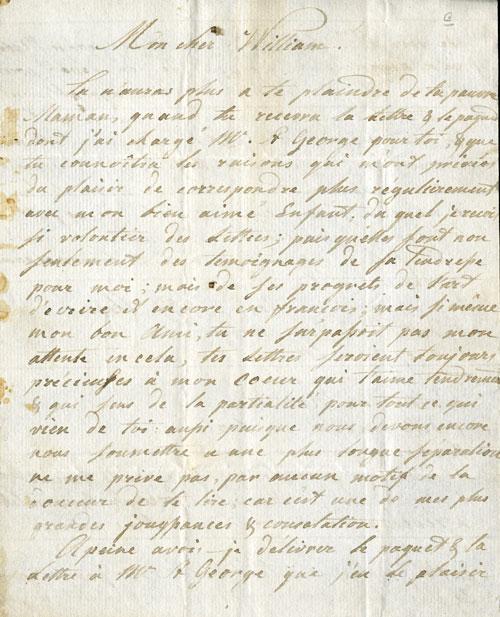 Mon cher William.
Tu n'auras plus a te plaindre de ta pauvre
Maman, quand tu recevra la Lettre & le paquet
dont j'ai chargé Mr. St George pour toi, & que
tu connoîtra les raisons qui m'ont privées
du plaisir de correspondre plus régulirement
avec mon bien aimé Enfant, du quel je reçoi
si volontier des Lettres; puis quelles sont non
seulement des temoignages de sa tendresse
pour moi; mais de ses progrets de l'art
d'ecrire et encore en francois; mais si même
mon bon Ami, tu ne surpassoit pas mon
attente en cela, tes Lettres seroient toujours
précieuses à mon coeur qui t'aime tendrement
& qui sens de la partialité pour tout ce qui
vien de toi: aussi puisque nous devons encore
nous soumettre a une plus longue séparation
ne me prive pas, par aucun motif de la
douceur de te lire; car c'est une de mes plus
grandes jouyssances & consolation.
A peine avois-je délivrer le paquet & la
Lettre à Mr. St George que j'eu le plaisir